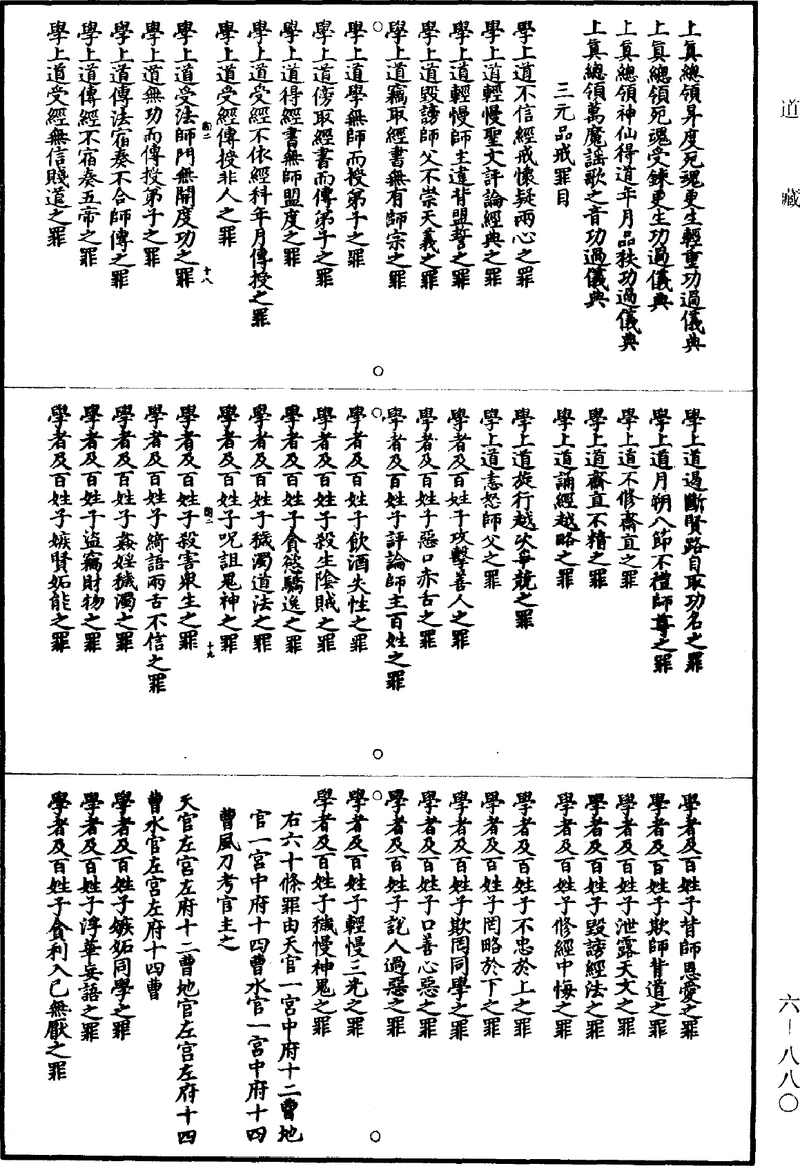 道藏
上真總領昇度死魂更生輕重功過儀典
上真總領死魂受鍊更生功過儀典
上真總領神仙得道年月品秩功過儀典
上真總領萬魔謠歌之音功過儀典
三元品戒罪目
學上道不信經戒懷疑兩心之罪
學上道輕慢聖文評論經典之罪
學上道輕慢師主違背盟誓之罪
學上道毀謗師父不崇天義之罪
學上道竊取經書無有師宗之罪
學上道學無師而授弟子之罪
學上道傍取經書而傳弟子之罪
學上道得經書無師盟度之罪
學上道受經不依經科年月傳授之罪
學上道受經傳授非人之罪
學上道受法師門無開度功之罪
十八
學上道無功而傳授弟子之罪
學上道傳法宿奏不合師傳之罪
學上道傳經不宿奏五帝之罪
學上道受經無信賤道之罪
學上道遏斷賢路自取功名之罪
學上道月朔八節不禮師尊之罪
學上道不修齋直之罪
學上道齋直不精之罪
學上道誦經越略之罪
學上道旋行越次爭競之罪
學上道恚怒師父之罪
學者及百姓子攻擊善人之罪
學者及百姓子惡口赤舌之罪
學者及百姓子評論師主百姓之罪
學者及百姓子飲酒失性之罪
學者及百姓子殺生陰賊之罪
學者及百姓子貪慾驕逸之罪
學者及百姓子穢濁道法之罪
學者及百姓子呪詛鬼神之罪
十九
學者及百姓子殺害衆生之罪
學者及百姓子綺語兩舌不信之罪
學者及百姓子姦婬穢濁之罪
學者及百姓子盜竊財物之罪
學者及百姓子嫉賢妬能之罪
學者及百姓子背師恩愛之罪
學者及百姓子欺師背道之罪
學者及百姓子泄露天文之罪
學者及百姓子毀謗經法之罪
學者及百姓子修經中悔之罪
學者及百姓子不忠於上之罪
學者及百姓子罔略於下之罪
學者及百姓子欺罔同學之罪
學者及百姓子口善心惡之罪
學者及百姓子說人過惡之罪
學者及百姓子輕慢三光之罪
學者及百姓子穢慢神鬼之罪
右六十條罪由天官一宮中府十二曹地
官一宮中府十四曹水官一宮中府十四
曹風刀考官主之
天官左宮左府十二曹地官左宮左府十四
曹水官左宮左府十四曹
學者及百姓子嫉妬同學之罪
學者及百姓子浮華妄語之罪
學者及百姓子貪利入己無厭之罪
六–八八〇